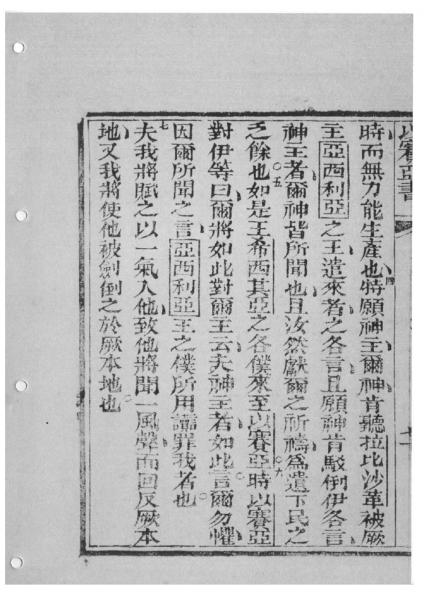 以賽亞書
時而無力能生產也特願神主爾神肯聽拉比沙革被厥
王亞西利亞之王遣來者之各言且願神肯駁倒伊各言
神主者爾神皆所聞也且汝然獻爾之祈禱為遺下民之
乏餘也〇五如是王希西其亞之各僕來至以賽亞時〇六以賽亞
對伊等曰爾將如此對爾王云夫神主者如此言爾勿懼
因爾所聞之言亞西利亞王之僕所用謗罪我者也〇
七夫我將賦之以一氣入他致他將聞一風聲而回反厥本
地又我將使他被劍倒之於厥本地也〇